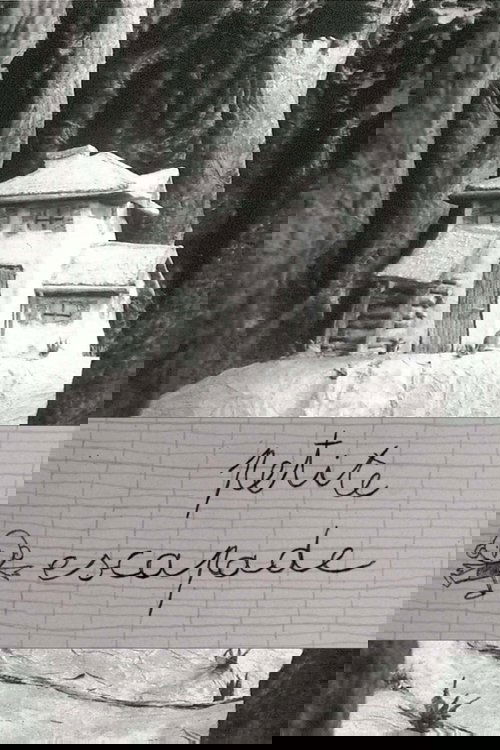 petite
escapade